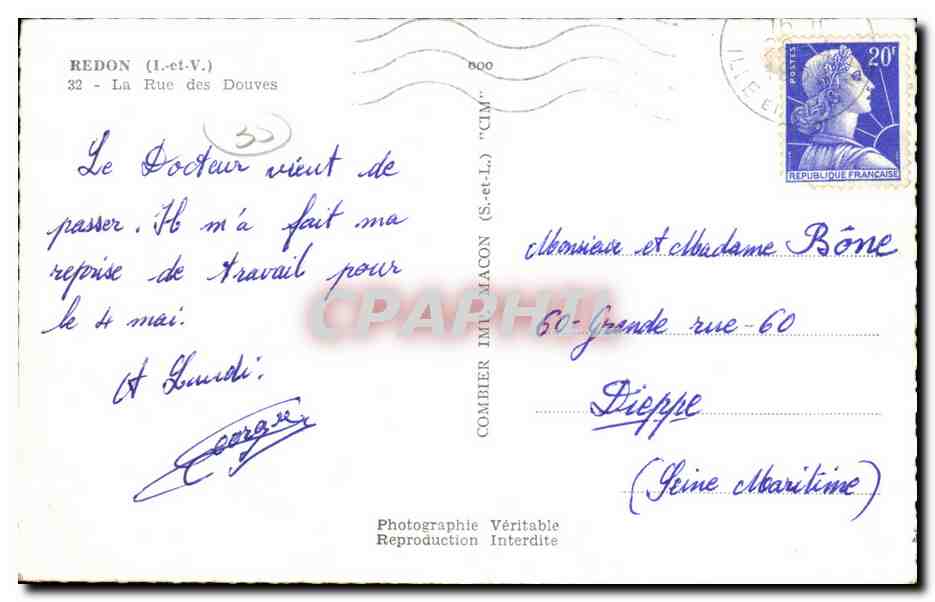 REDON (I.-et-V.)
32 - La Rue des Douves
35
Le Docteur vient de
passer. Il m'a fait ma
reprise de travail pour
le 4 mai.
A Lundi.
Georges
COMBIER IMP. MACON (S.-et-L.) "CIM"
ooo
ILLE ET
POSTES
20F
REPUBLIQUE FRANÇAISE
Monsieur et Madame Bône
60 - Grande rue - 60
Dieppe
(Seine Maritime)
CPARPHIL
Photographie Véritable
Reproduction Interdite